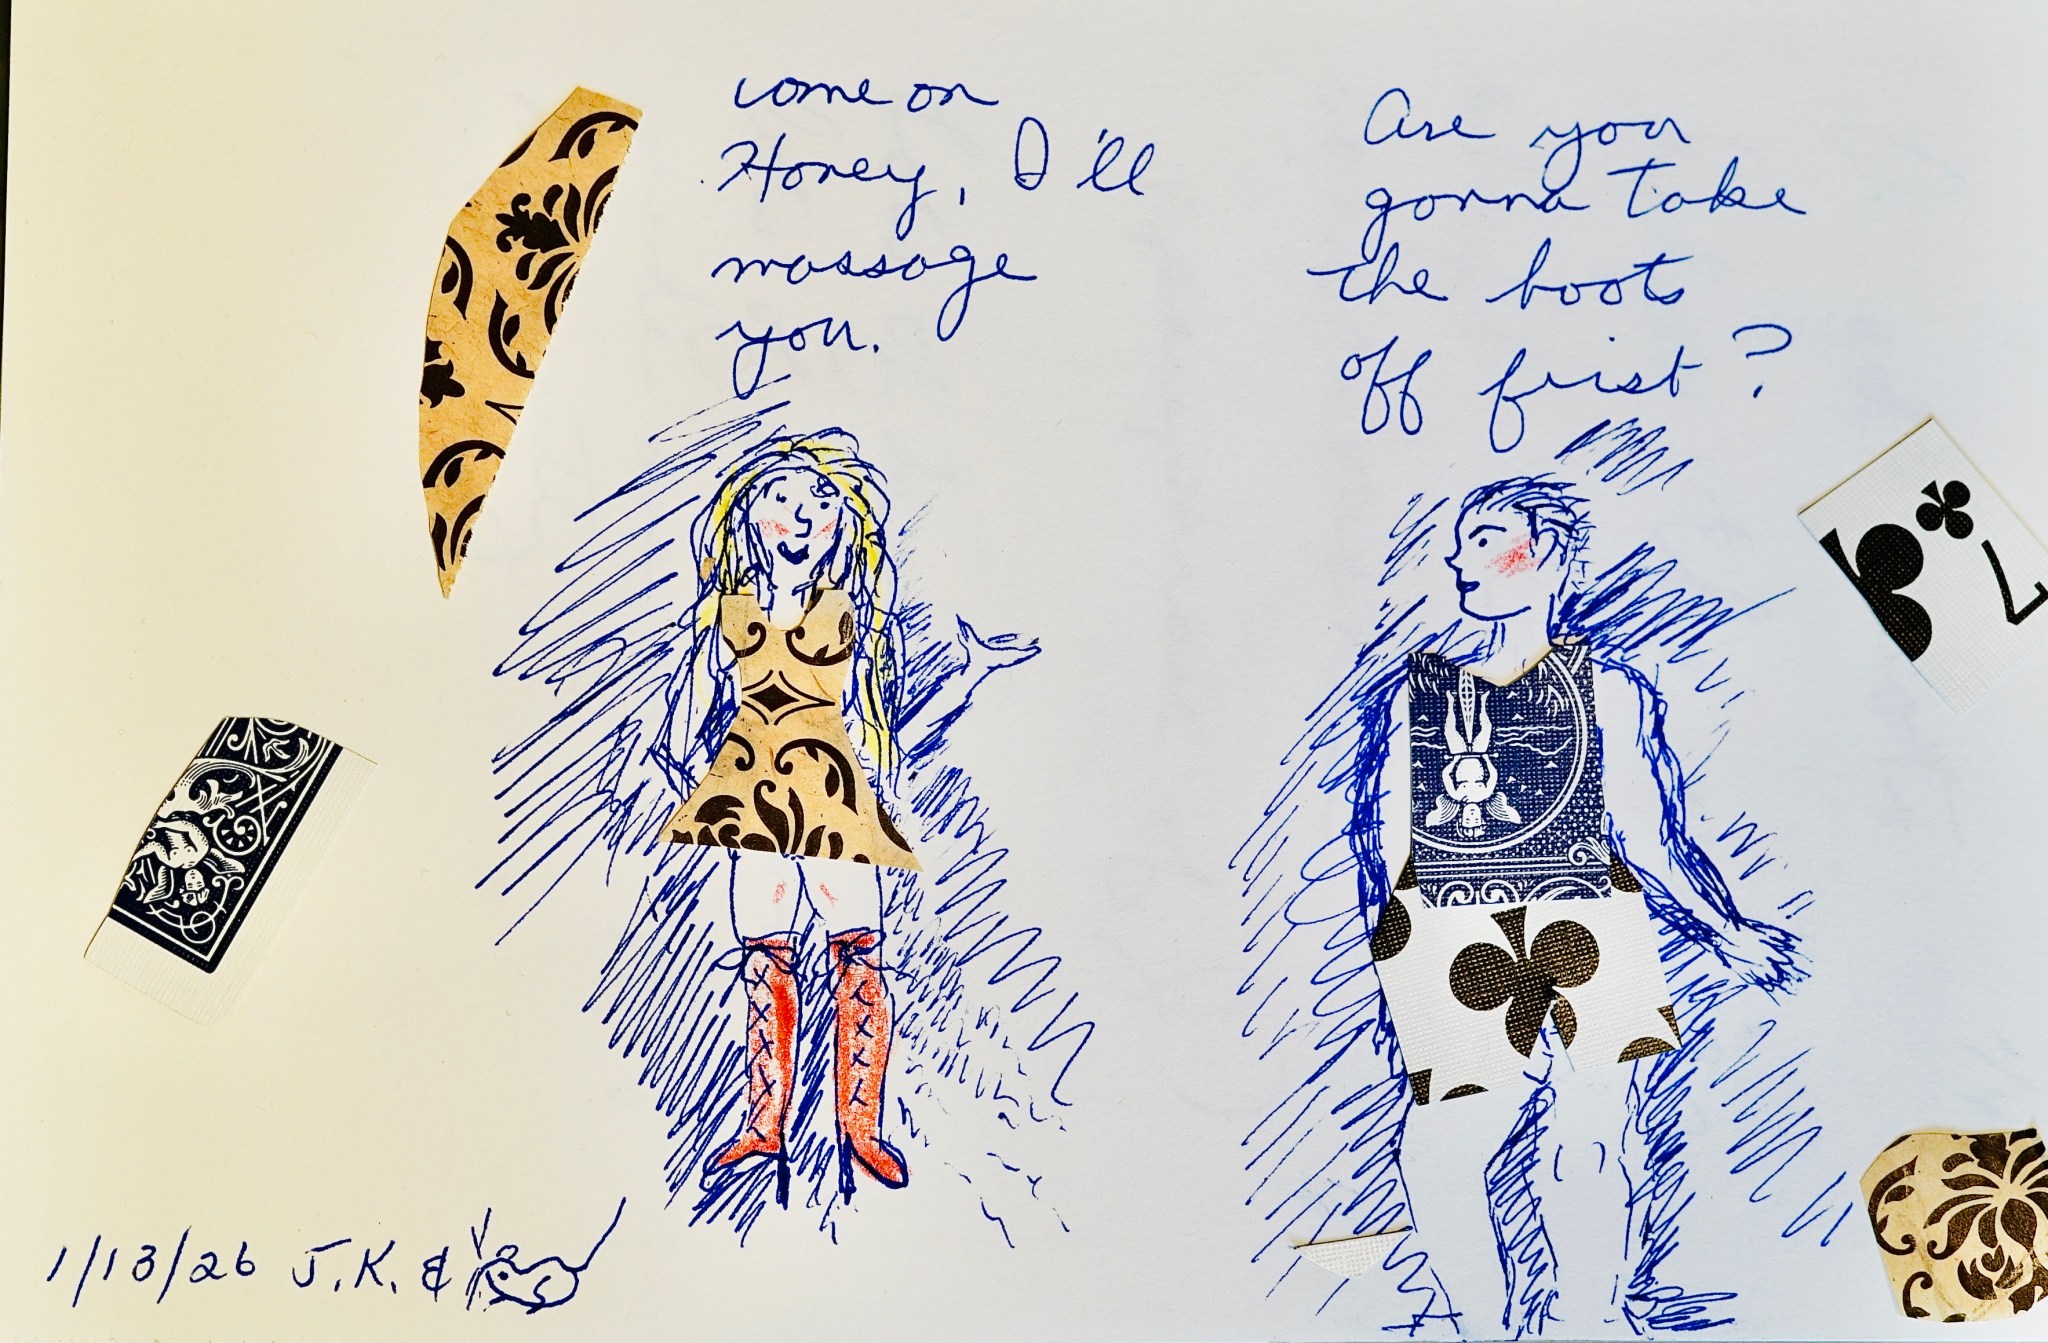 come on
Honey, I'll
massage
you.
Are you
gonna take
the boots
off frist?
7
1/13/26 J.K. &